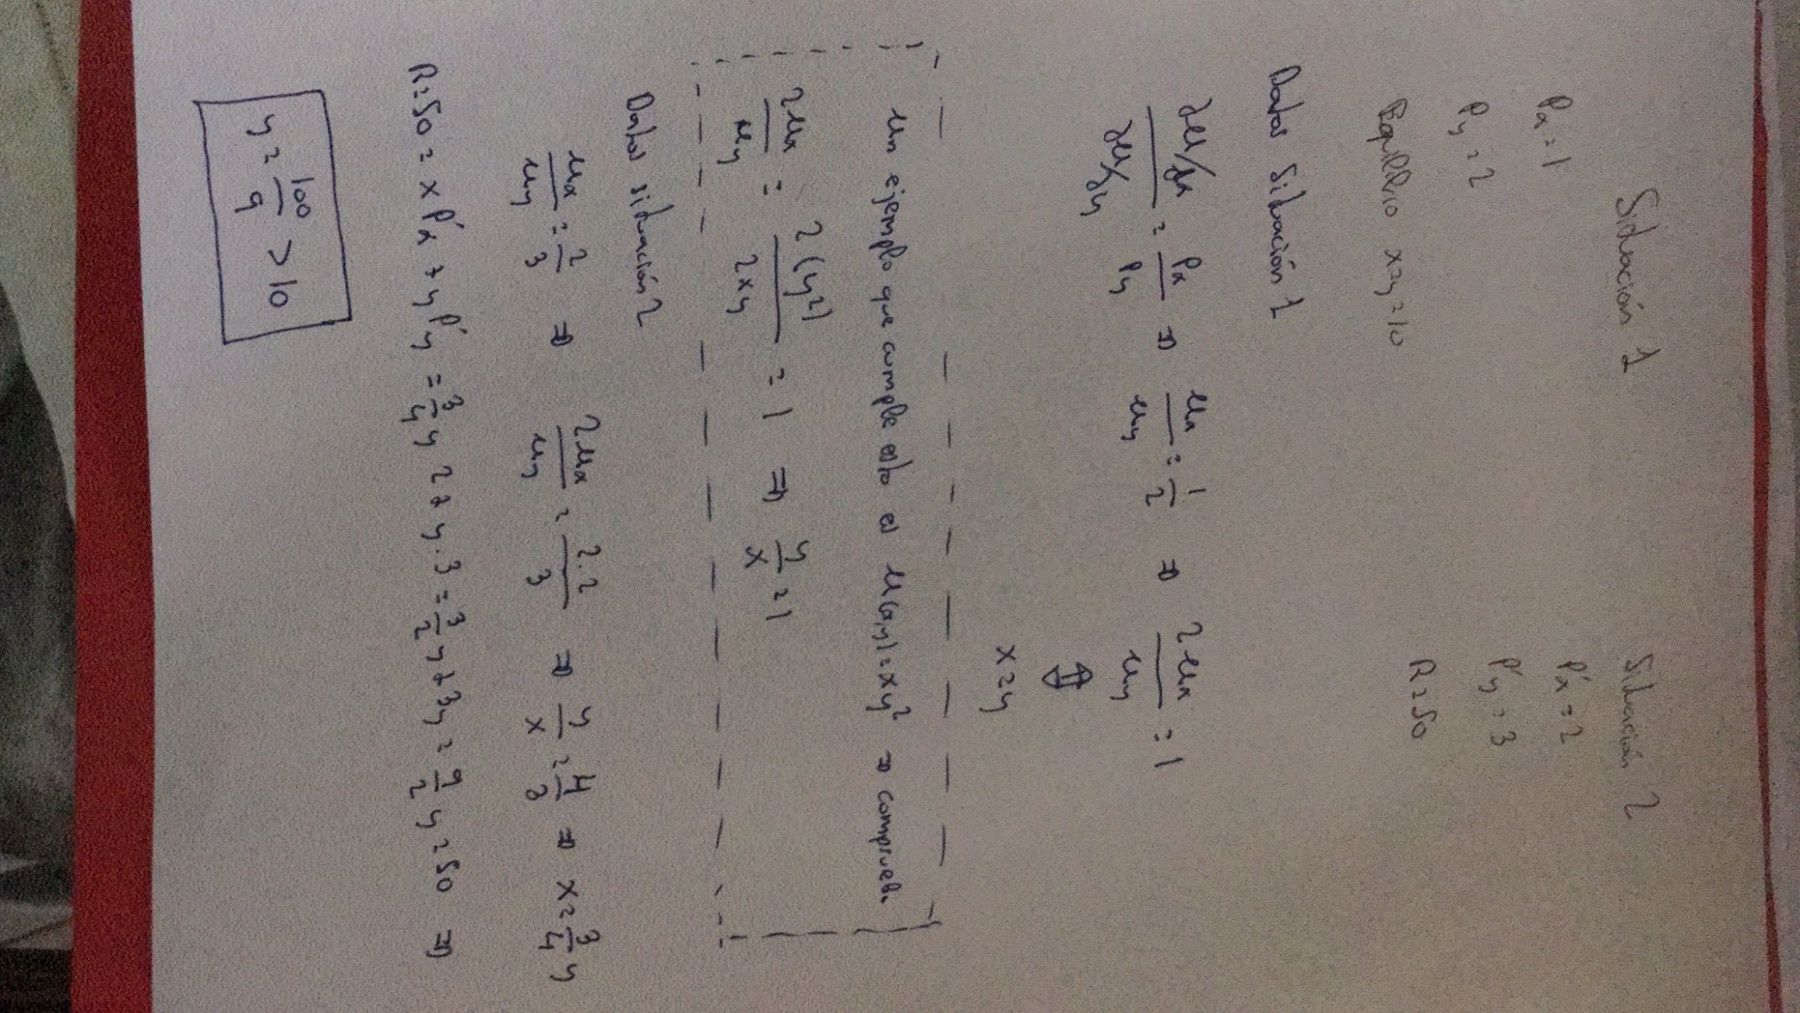 Situación 1 Situación 2
Px = 1 P'x = 2
Py = 2 P'y = 3
Equilibrio x=y=10 R=50
Datos Situación 1
∂u/∂x / ∂u/∂y = Px/Py ⇒ ux/uy = 1/2 ⇒ 2ux/uy = 1
⇕
x=y
un ejemplo que cumple esto es u(x,y) = xy² ⇒ comprueb.
2ux/uy = 2(y²)/2xy = 1 ⇒ y/x = 1
Datos situación 2
ux/uy = 2/3 ⇒ 2ux/uy = 2·2/3 ⇒ y/x = 4/3 ⇒ x = 3/4 y
R=50 = x P'x + y P'y = 3/4 y 2 + y·3 = 3/2 y + 3y = 9/2 y = 50 ⇒
y = 100/9 > 10